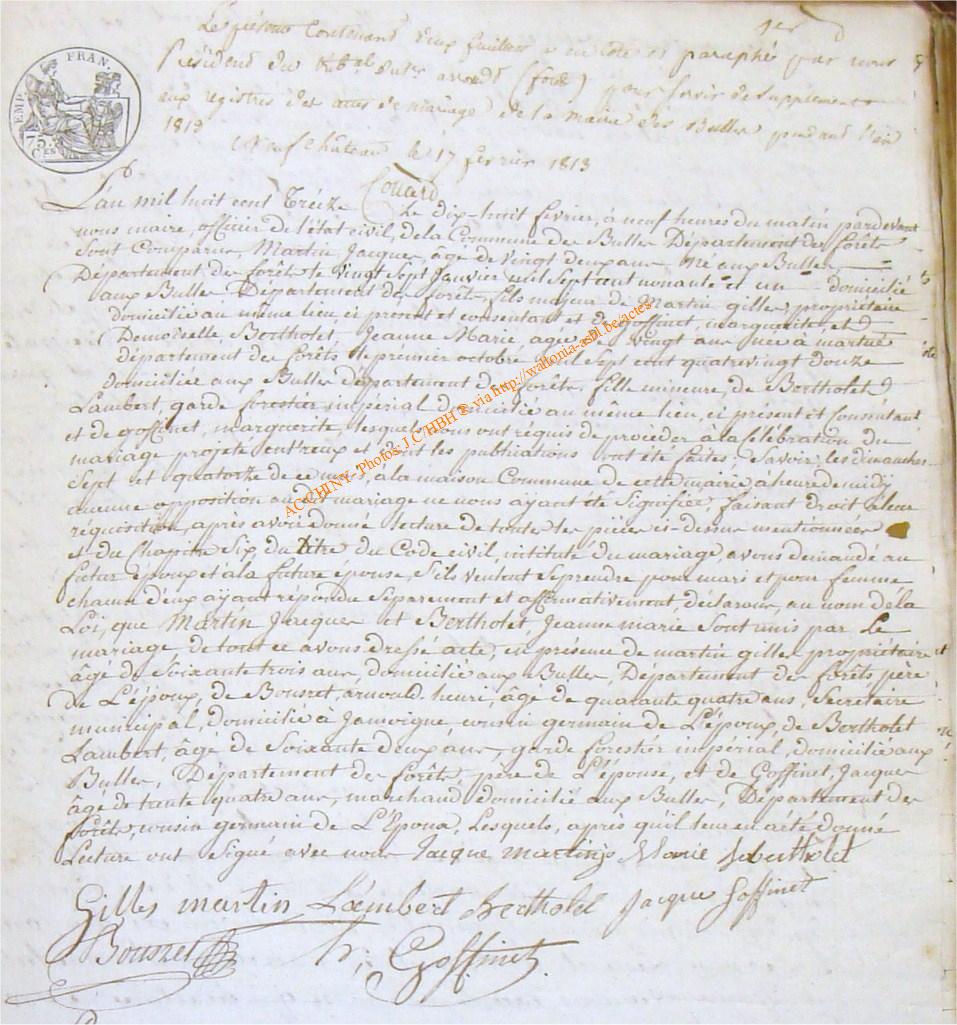 1er
Le présent Contenant deux feuillets a été coté et paraphé par nous
Président du tribal d'arr (forêts) pour servir de Supplément
aux registres des actes de mariage de la mairie des Bulles pendant l'an
1813
Neufchâteau le 17 février 1813
EMP. FRAN.
75 CES
L'an mil huit cent Treize Le dix-huit février, à neuf heures du matin pardevant
nous maire, officier de l'état civil, de la Commune des Bulles Département des forêts
sont Comparus Martin Jacques, âgé de vingt deux ans Né aux Bulles,
Département des forêts le vingt Sept Janvier mil Sept cent nonante et un domicilié
aux Bulles Département des forêts, fils majeur de Martin gilles propriétaire
domicilié au même lieu, ci présent et consentant et de Goffinet, marguerite, et D
Demoiselle, Bertholet Jeanne Marie, agée de vingt ans née à martué
département des forêts le premier octobre mil sept cent quatrevingt douze
domiciliée aux Bulles département des forêts, fille mineure, de Bertholet
Lambert, garde forestier impérial domicilié au même lieu, ci présent et Consentant
et de goffinet, marguerite, lesquels nous ont réquis de procéder à la célébration du
mariage projeté entr'eux et dont les publications ont été faites, Savoir les dimanches
Sept et quatorze de ce mois, à la maison Commune de cette mairie à heure de midy
aucune opposition audit mariage ne nous ayant été Signifiée, faisant droit à leur
réquisition, après avoir donné lecture de toutes les pièces ci-dessus mentionnées
et du Chapitre Six du titre du Code civil, intitulé du mariage, avons demandé au
futur époux et à la future épouse, s'ils veulent se prendre pour mari et pour femme
chacun d'eux ayant répondu Séparement et affirmativement, déclarons, au nom de la
Loi, que Martin Jacques et Bertholet Jeanne marie sont unis par Le
mariage de tout ce avons dressé acte, en présence de martin gilles propriétaire
âgé de soixante trois ans, domicilié aux Bulles, Département des forêts, père
de L'époux, de Bousret, arnould henri, âgé de quarante quatre ans, Secrétaire
municipal, domicilié à Jamoigne cousin germain de L'époux, de Bertholet
Lambert, âgé de Soixante deux ans, garde forestier impérial, domicilié aux
Bulles, Département des forêts, père de L'épouse, et de Goffinet, Jacques
âgé de trente quatre ans, marchand domicilié aux Bulles, Département des
forêts, cousin germain de L'épouse, Lesquels, après qu'il leur en a été donné
Lecture ont Signé avec nous Jacque martin Marie J bertholet
Gilles martin Lambert Bertholet Jacque Goffinet
Bousret Goffinet
AC CHINY - Photos J.C HBH © via http://wallonia-asbl.be/actes